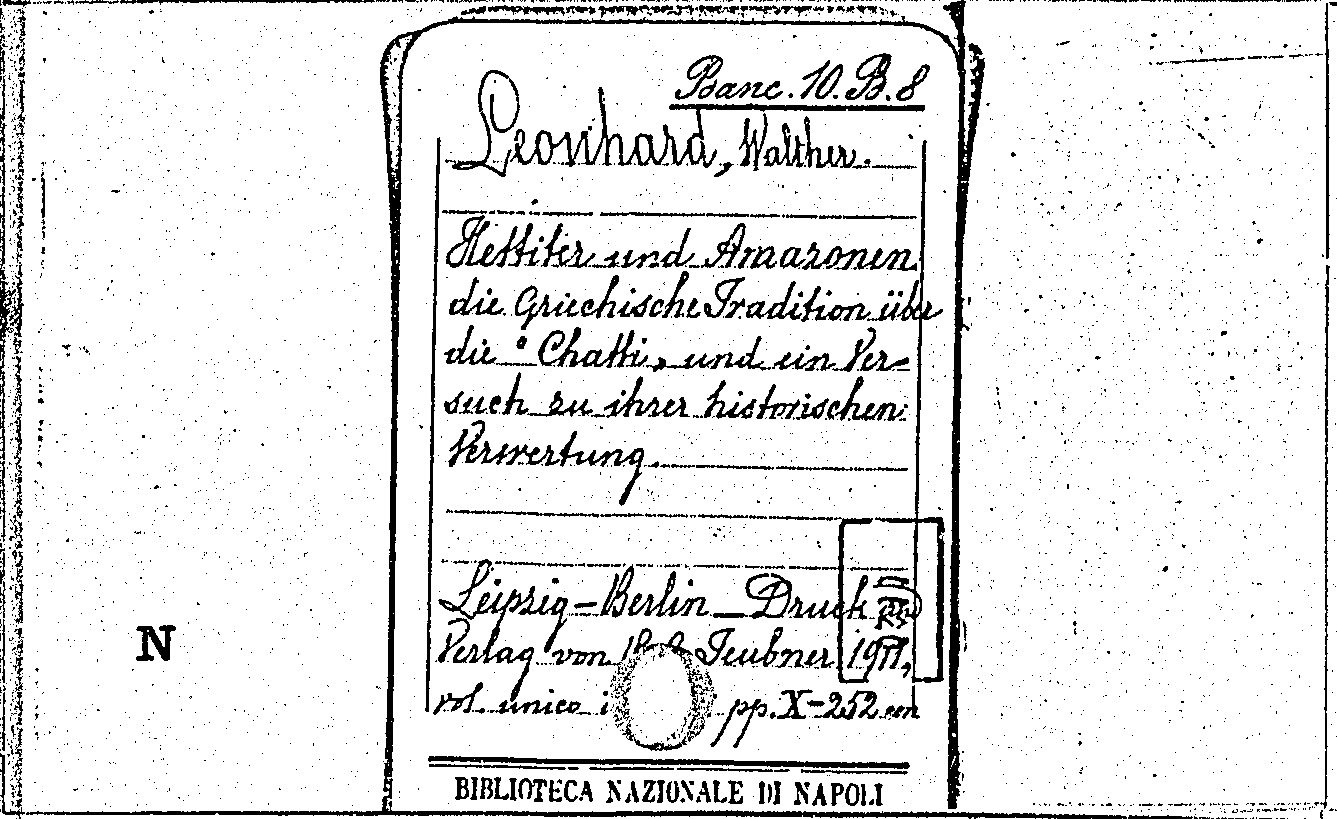 Banc. 10. B. 8
Leonhard, Walther.
Hettiter und Amazonen
die Griechische Tradition über
die "Chatti„ und ein Ver-
such zu ihrer historischen
Verwertung.
Leipzig - Berlin - Druck
Verlag von Teubner 1911,
vol. unico pp. X-252 con
BIBLIOTECA NAZIONALE DI NAPOLI
N